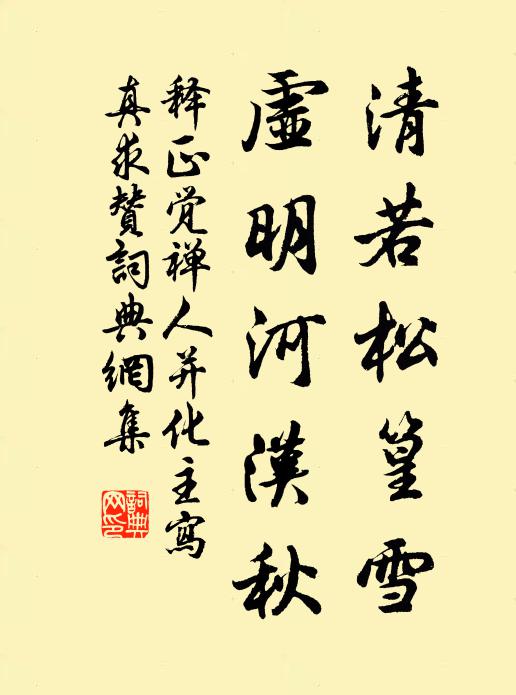 清若松篁雪
虚明河漢秋
释正觉禅人并化主寫
真求賛詞典網集
詞典网印